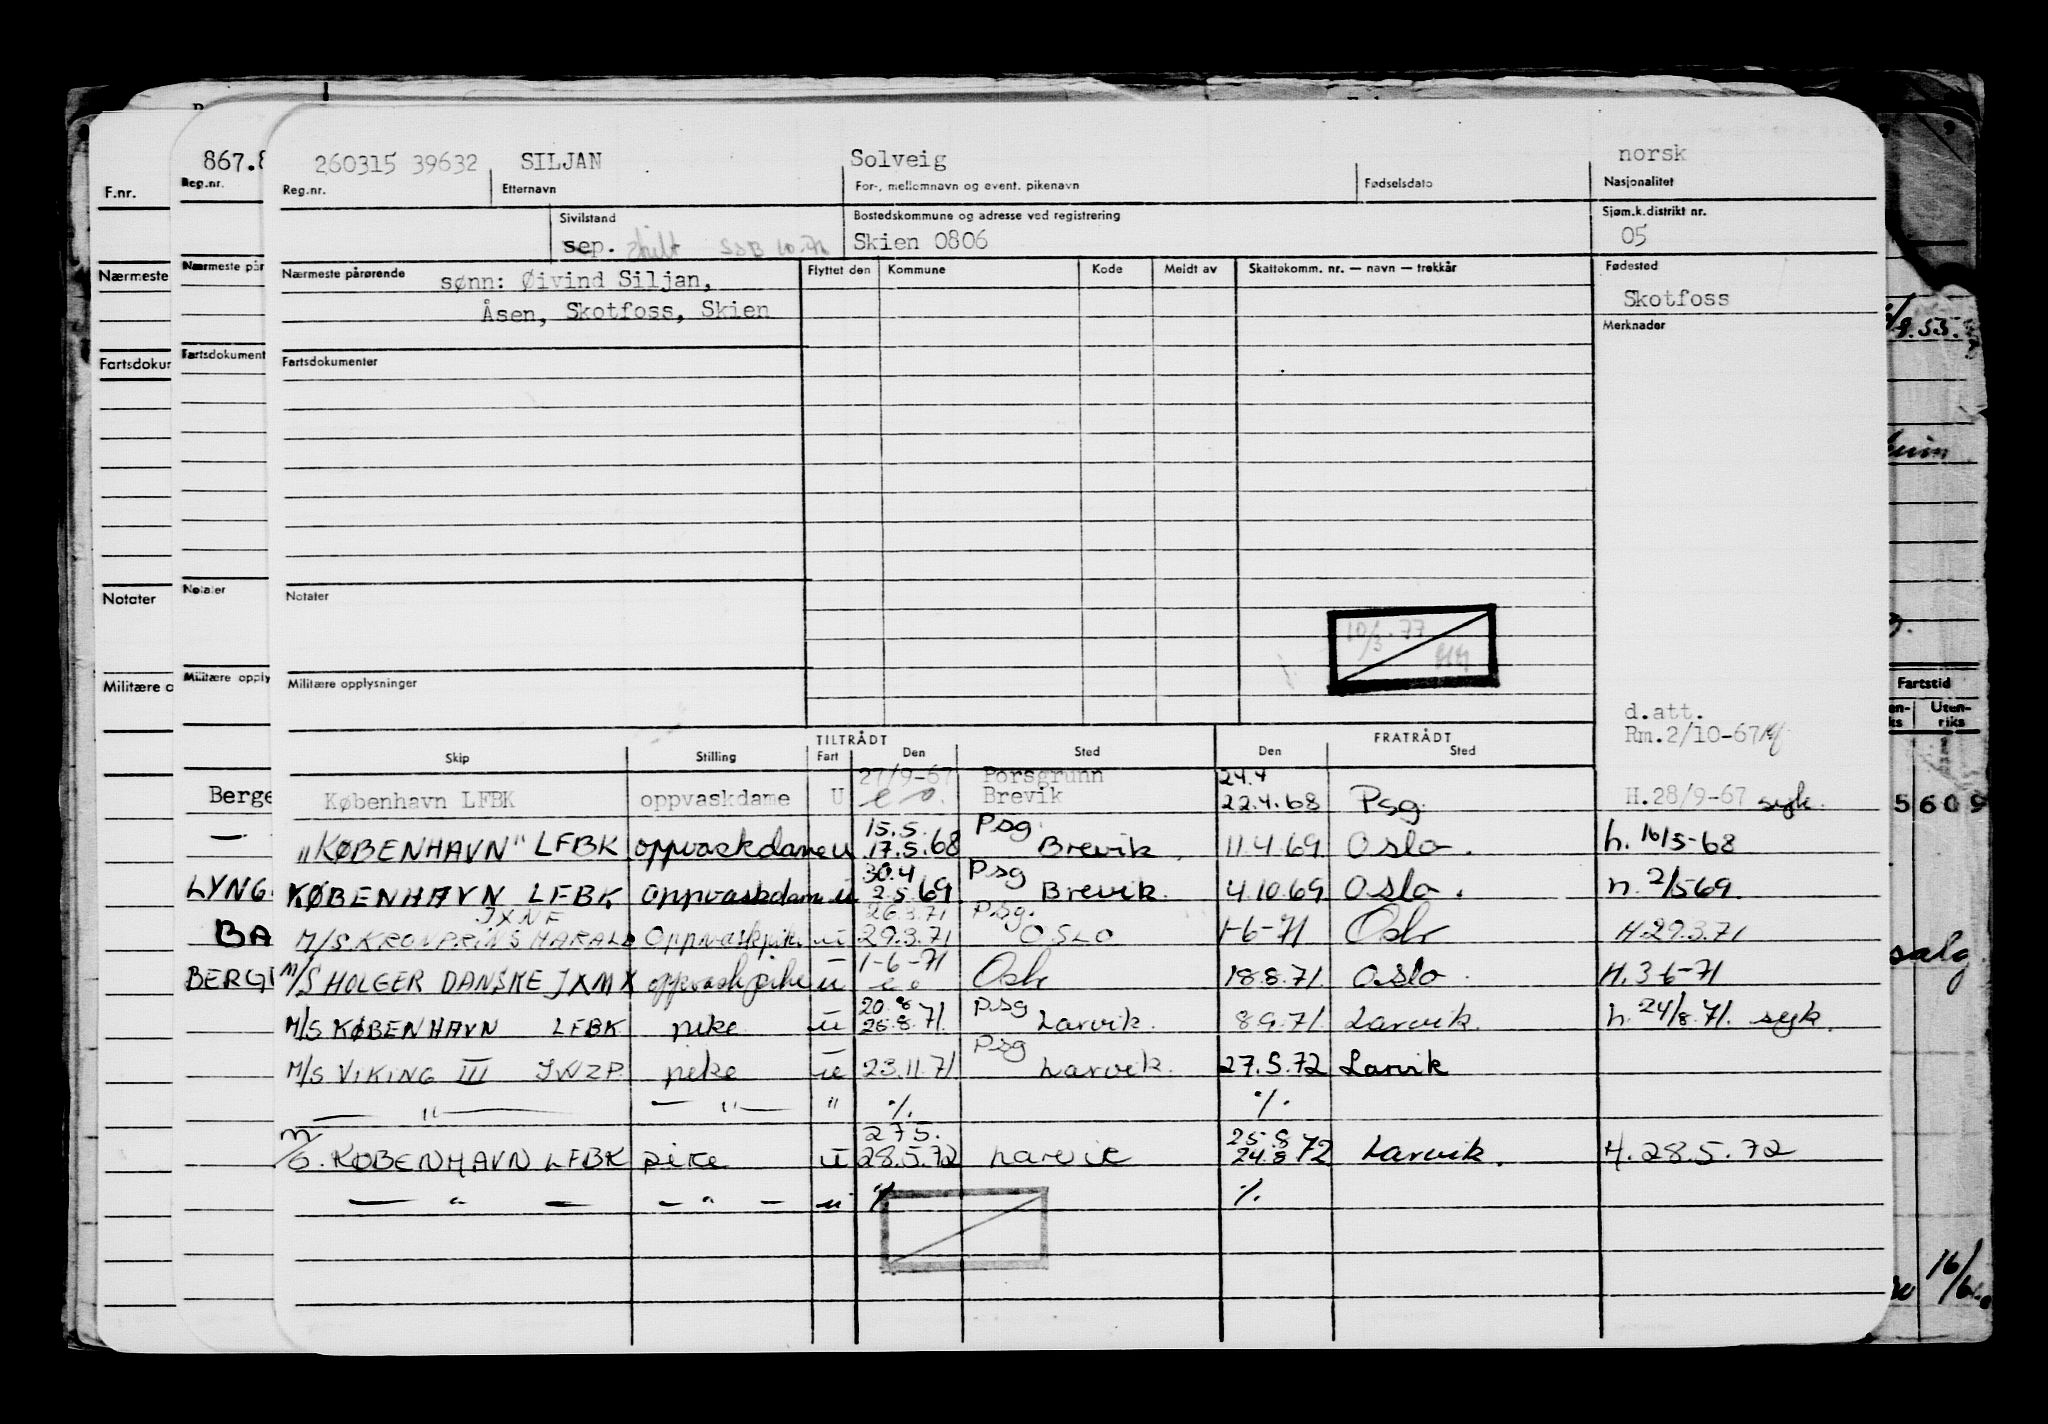 867.8
260315 39632 SILJAN Solveig norsk
F.nr. Reg.nr. Reg.nr. Etternavn For-, mellomnavn og event. pikenavn Fødselsdato Nasjonalitet
Sivilstand Bostedskommune og adresse ved registrering Sjøm.k.distrikt nr.
sep. skilt SSB 10-71 Skien 0806 05
Nærmeste Nærmeste pår Nærmeste pårørende Flyttet den Kommune Kode Meldt av Skattekomm. nr. — navn — trekkår Fødested
sønn: Øivind Siljan,
Åsen, Skotfoss, Skien Skotfoss
Merknader
/9.53.
Fartsdokum Fartsdokument Fartsdokumenter
Notater Notater Notater
10/3-77
Militære o Militære opply Militære opplysninger Fartstid
Uten-
riks
d.att.
Rm.2/10-67
TILTRÅDT FRATRÅDT
Skip Stilling Fart Den Sted Den Sted
27/9-67 Porsgrunn 24.4
Berge København LFBK oppvaskdame U Brevik 22.4.68 Psg. H.28/9-67 syk. 5609
15.5. Psg.
— „KØBENHAVN" LFBK oppvaskdame u 17.5.68 Brevik 11.4.69 Oslo. h. 16/5-68
30.4 Psg
LYNG KØBENHAVN LFBK oppvaskdam u 2.5.69 Brevik. 4.10.69 Oslo. h. 2/569.
JXNF 26.3.71 Psg.
BA M/S KRONPRINS HARALD Oppvaskpike u 29.3.71 OSLO 1-6-71 Oslo H.29.3.71 salg
1-6-71
BERG M/S HOLGER DANSKE JXMX oppvaskpike u Oslo 18.8.71. Oslo. H.3-6-71
20.8 Psg
M/S KØBENHAVN LFBK pike u 26.8.71. Larvik. 8.9.71. Larvik. h. 24/8.71. syk.
Psg
M/S VIKING III JWZP. pike u 23.11.71. Larvik. 27.5.72 Larvik
— " — — " — " %. %.
27.5. 25.8
M/S. KØBENHAVN LFBK pike u 28.5.72 Larvik 24.8 72 Larvik. H.28.5.72
— " — — " — u % %.
16/6.